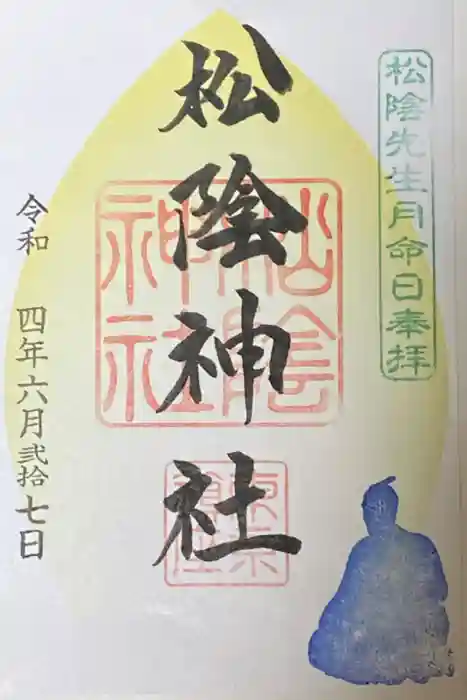 松陰先生月命日奉拝
松陰神社
松陰神社
令和 四年六月弐拾七日